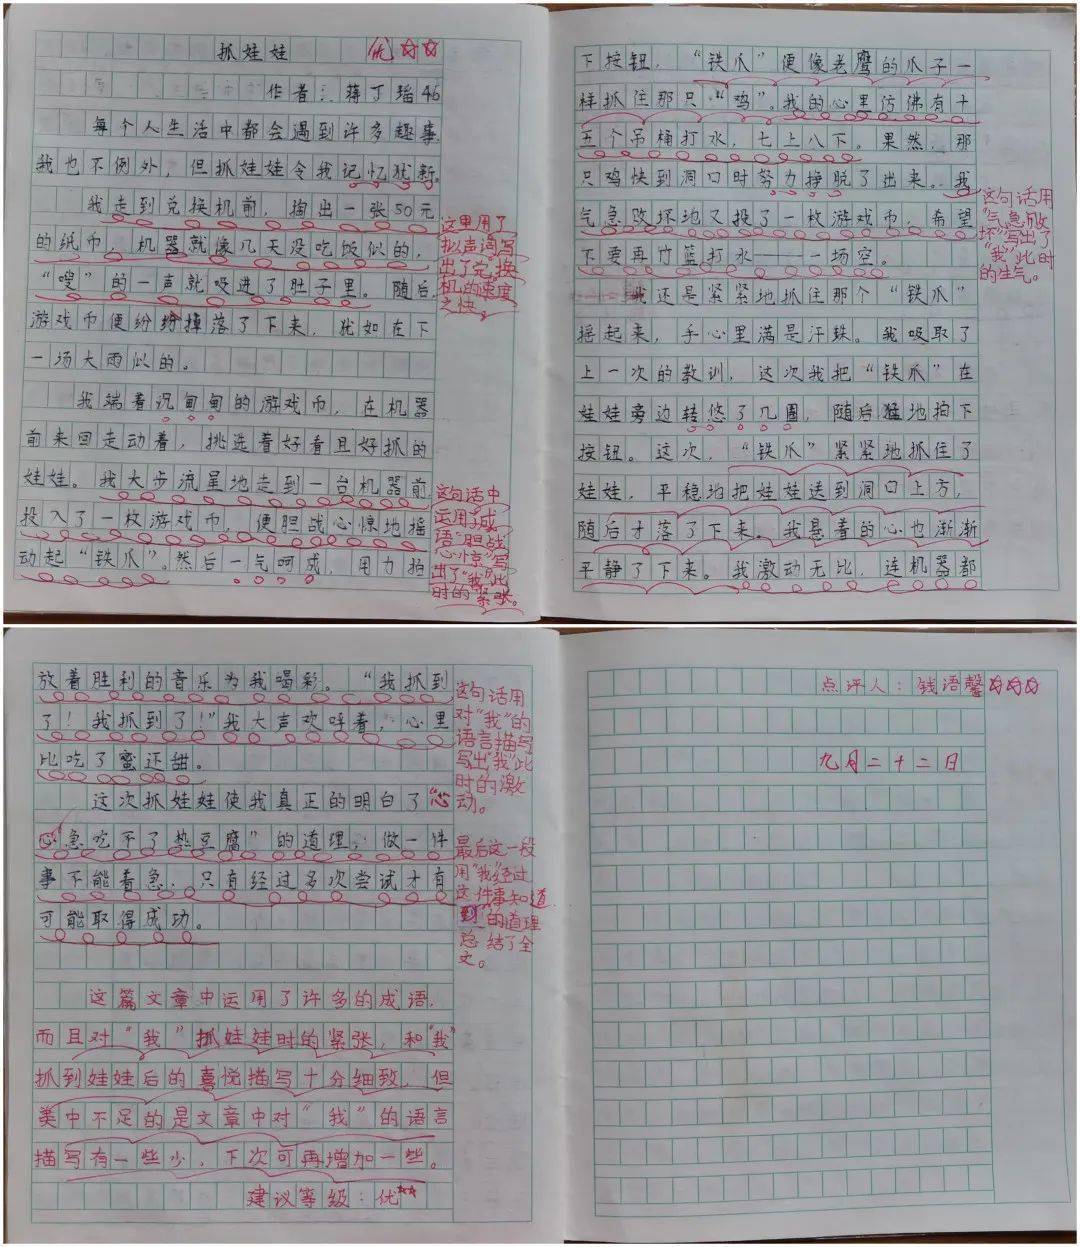 抓娃娃 优☆☆
作者:蒋丁瑶46
每个人生活中都会遇到许多趣事,
我也不例外,但抓娃娃令我记忆犹新。
我走到兑换机前,掏出一张50元
的纸币,机器就像几天没吃饭似的,
“嗖”的一声就吸进了肚子里。随后,
游戏币便纷纷掉落了下来,犹如在下
一场大雨似的。
我端着沉甸甸的游戏币,在机器
前来回走动着,挑选着好看且好抓的
娃娃。我大步流星地走到一台机器前,
投入了一枚游戏币,便胆战心惊地摇
动起“铁爪”。然后一气呵成,用力拍
这里用了
拟声词,写
出了兑换
机的速度
之快。
这句话中
运用了成
语“胆战
心惊”写
出了“我”此
时的紧张。
下按钮,“铁爪”便像老鹰的爪子一
样抓住那只“鸡”。我的心里仿佛有十
五个吊桶打水,七上八下。果然,那
只鸡快到洞口时努力挣脱了出来。我
气急败坏地又投了一枚游戏币,希望
不要再竹篮打水——一场空。
我还是紧紧地抓住那个“铁爪”
摇起来,手心里满是汗珠。我吸取了
上一次的教训,这次我把“铁爪”在
娃娃旁边转悠了几圈,随后猛地拍下
按钮。这次,“铁爪”紧紧地抓住了
娃娃,平稳地把娃娃送到洞口上方,
随后才落了下来。我悬着的心也渐渐
平静了下来。我激动无比,连机器都
这句话用
“气急败
坏”写出了
“我”此时
的生气。
放着胜利的音乐为我喝彩。“我抓到
了!我抓到了!”我大声欢呼着,心里
比吃了蜜还甜。
这次抓娃娃使我真正的明白了“心
急吃不了热豆腐”的道理,做一件
事不能着急,只有经过多次尝试才有
可能取得成功。
这句话用
对“我”的
语言描写
写出“我”此
时的激
动。
最后这一段
用“我”经过
这件事知道
到的道理
总结了全
文。
这篇文章中运用了许多的成语,
而且对“我”抓娃娃时的紧张,和“我”
抓到娃娃后的喜悦描写十分细致,但
美中不足的是文章中对“我”的语言
描写有一些少,下次可再增加一些。
建议等级:优☆☆
点评人:钱语馨☆☆☆
九月二十二日